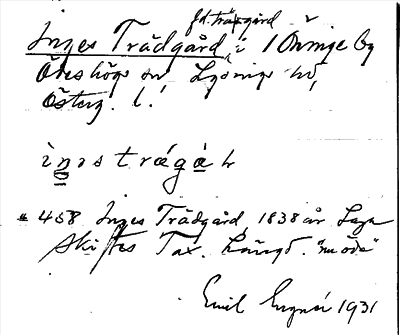 fd. trädgård
Inges Trädgård, i Öninge by
Ödeshögs sn Lysings hd,
Österg. l.
inəs trägåh
458 Inges Trädgård, 1838 år Laga
Skiftes Tax. Längd. "
Emil 1931